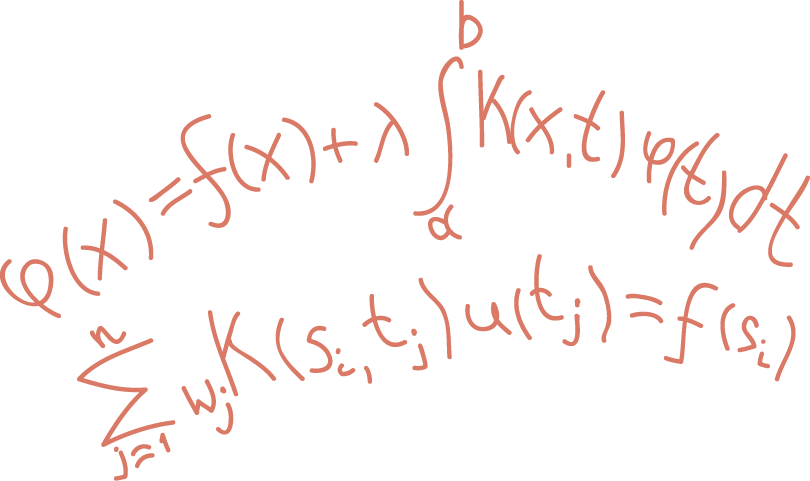 φ(x)=f(x)+λ∫_a^b K(x,t)φ(t)dt
∑_{j=1}^n w_j K(s_i,t_j)u(t_j)=f(s_i)